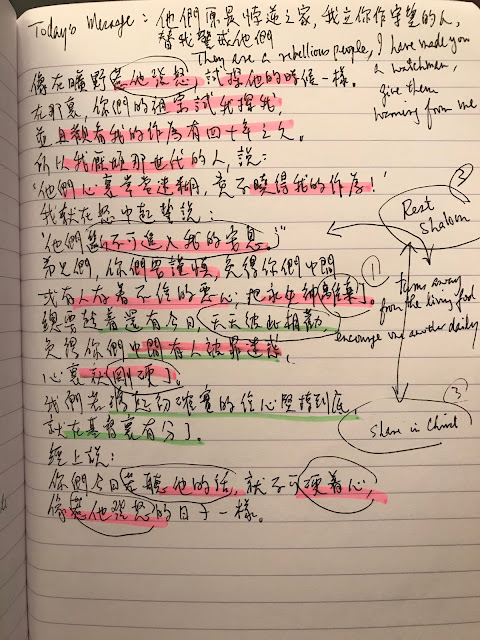 Today's Message: 他們原是悖逆之家，我立你作守望的人，
替我警戒他們
They are a rebellious people, I have made you
a watchman,
give them
warning from me
像在曠野惹他發怒，試探他的時候一樣。
在那裏，你們的祖宗試我探我
並且觀看我的作為有四十年之久。
所以我厭煩那世代的人，說：
"他們心裏常常迷糊，竟不曉得我的作為！"
我就在怒中起誓說：
"他們斷不可進入我的安息。"
弟兄們，你們要謹慎，免得你們中間
或有人存着不信的惡心，把永生神離棄了。
總要趁着還有今日，天天彼此相勸
免得你們中間有人被罪迷惑，
心裏就剛硬了。
我們若將起初確實的信心堅持到底，
就在基督裏有分了。
經上說：
你們今日若聽他的話，就不可硬着心，
像惹他發怒的日子一樣。
②
Rest
Shalom
①
turns away
from the living God
encourage one another daily
③
Share in Christ